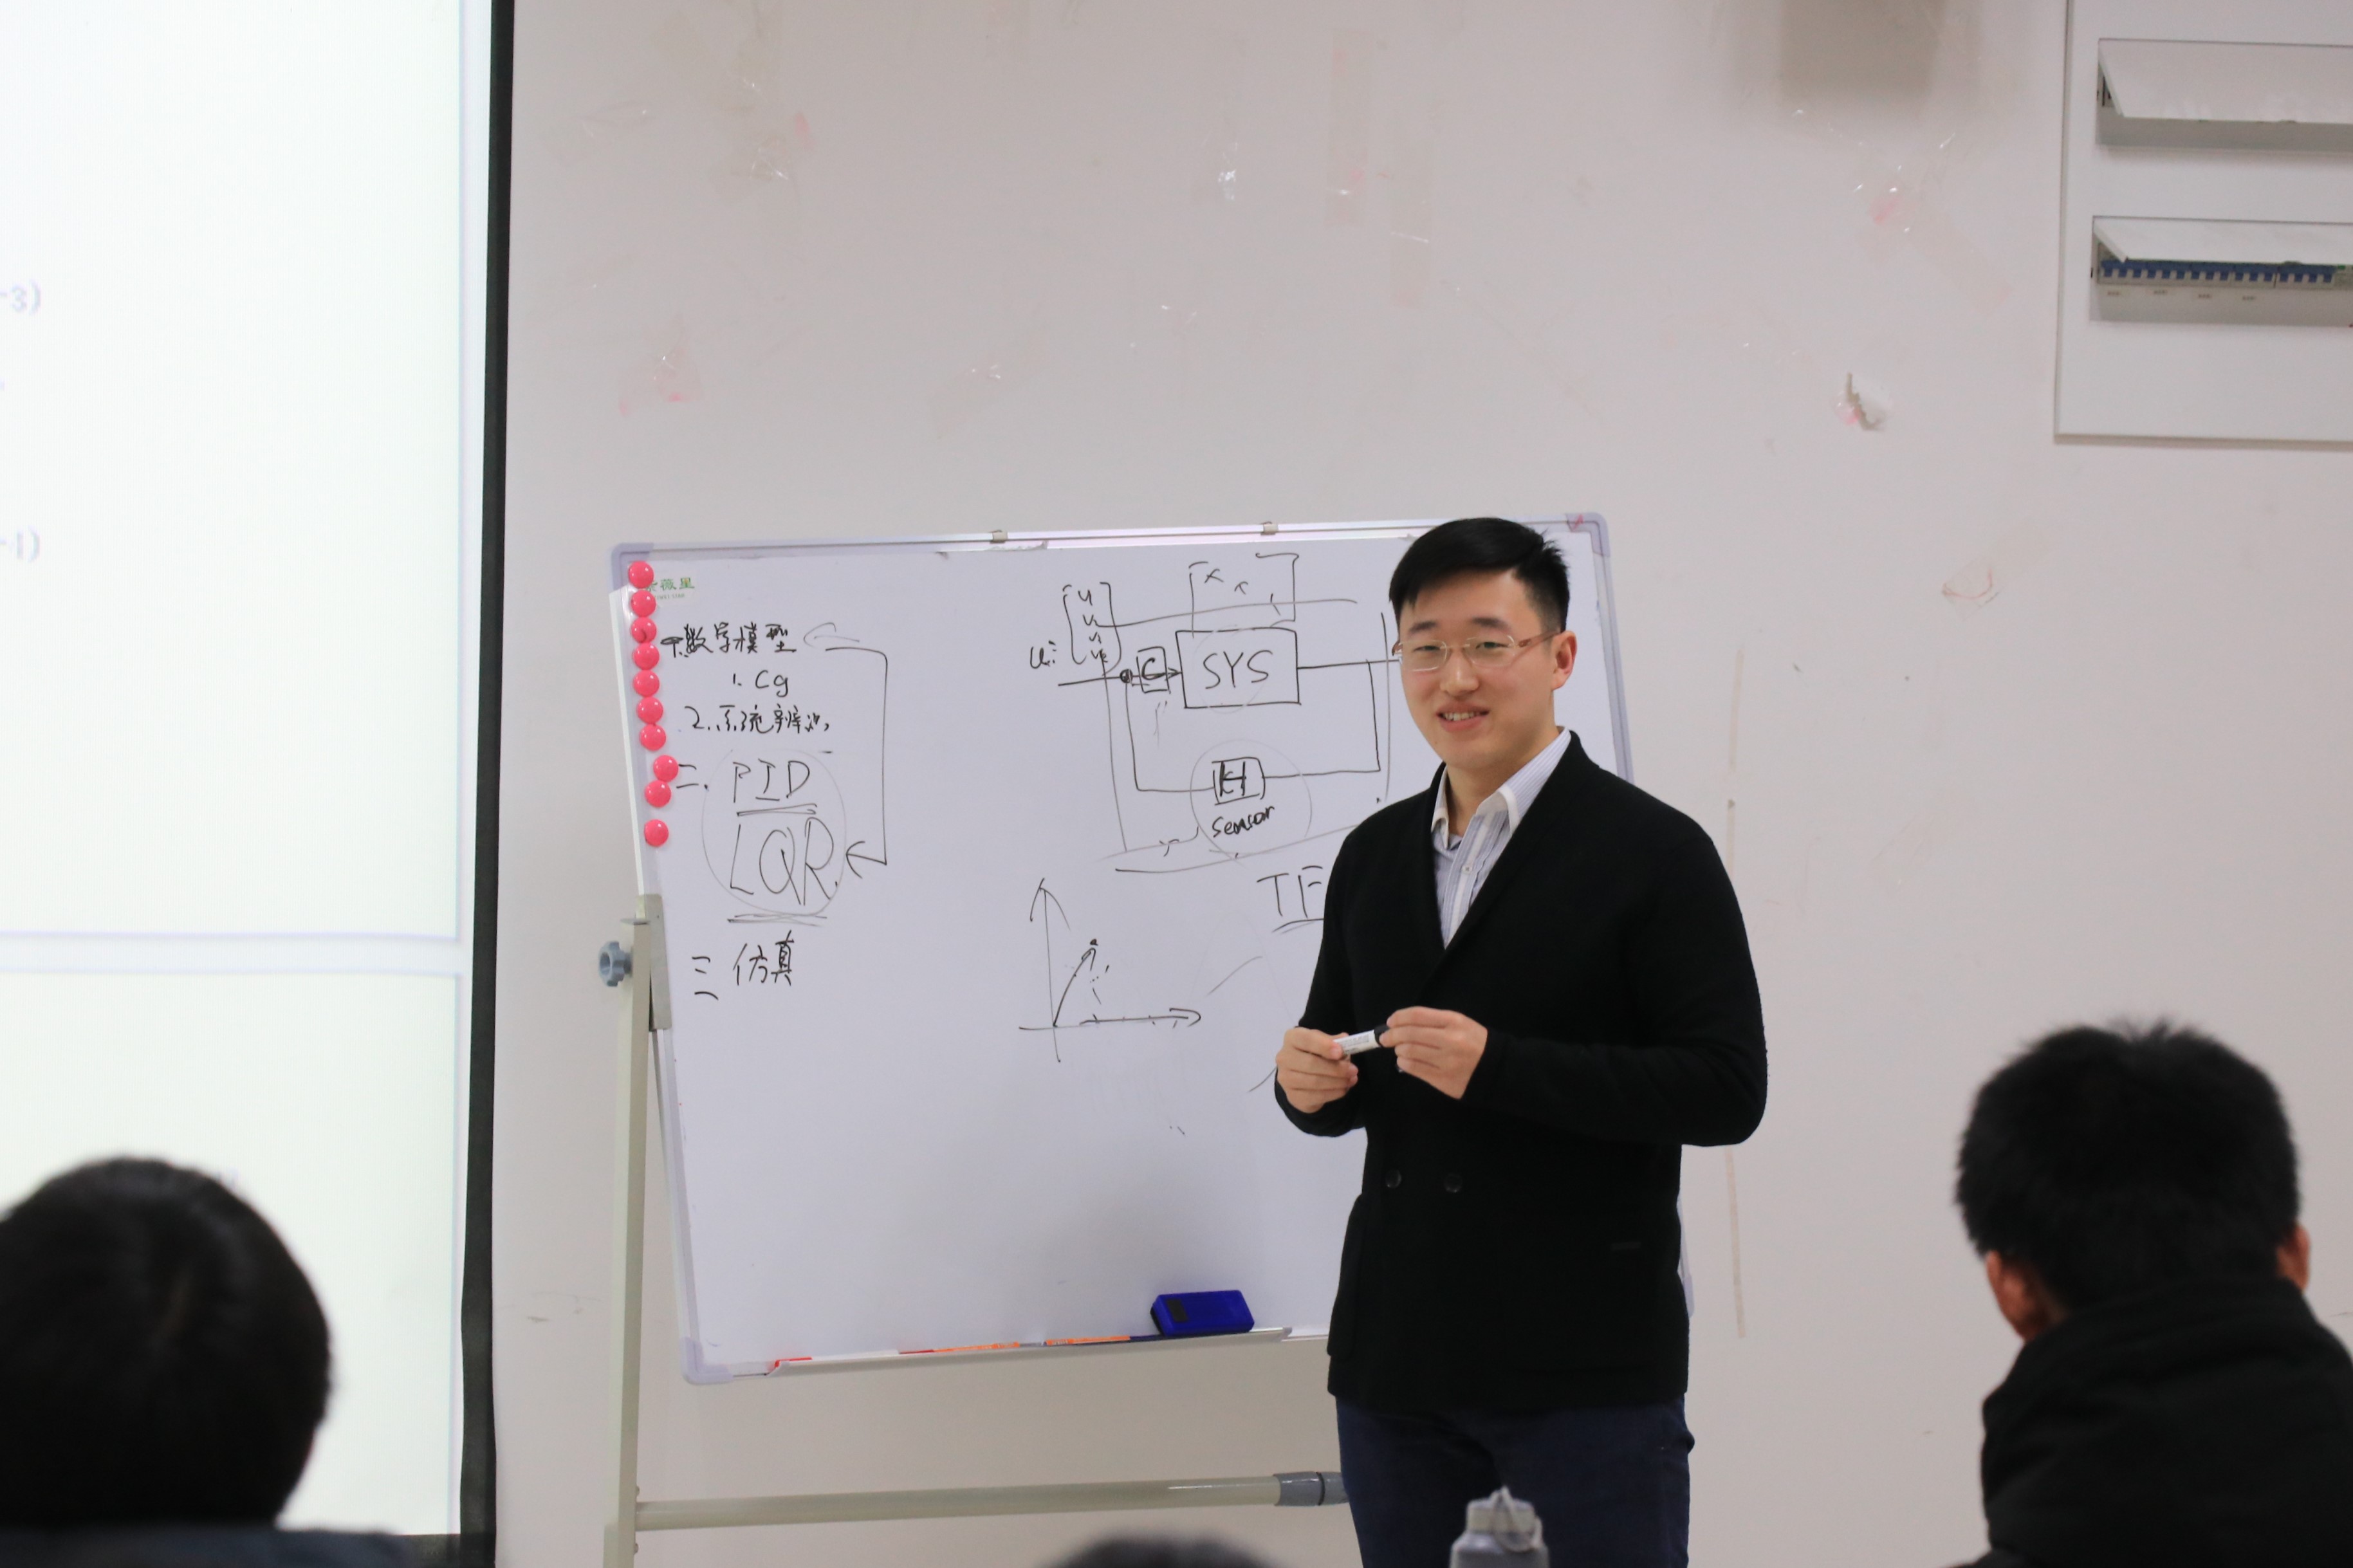 -3)
-1)
薇星
一.数学模型
1. Cg
2.系统辨识
二. PID
LQR
三 仿真
u:
u
u
x x
C
SYS
H
Sensor
TF